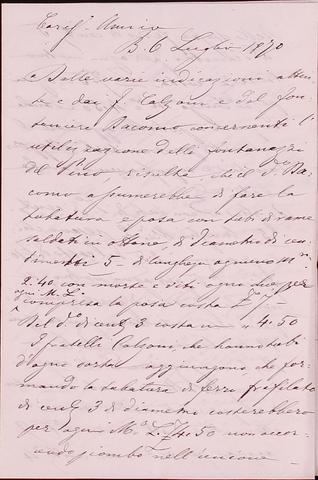 Cariss. Amico
B. 6 Luglio 1870
Dalle varie indicazioni
te e dai f. Calzoni e dal fon-
taniere Bacomo concernenti l'
utilizzazione delle fontanazze
del Pino, risulta, che il d.° Ba-
como assumerebbe di fare la
tubatura e posa con tubi di rame
saldati in ottone, di diametro di cen-
timetri 5 - di lunghezza ognuno M.
2.40 con morse e viti ogni due per
ogni M. L.
compresa la posa costa 7.
del d.° di cent. 3 costa " 4.50
I fratelli Calzoni, che hanno tubi
d'ogni sorta aggiungono che for-
mando la tubatura di ferro trafilato
di cent. 3 di diametro costerebbero
per ogni M.° L. 4.50 non occor-
rendo piombo nell'unione